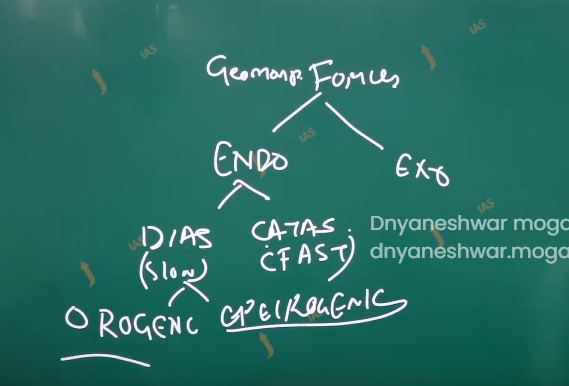 Geomorp. Forces
ENDO
EXO
DIAS
(Slow)
CATAS.
(FAST)
OROGENC
EPEIROGENIC
Dnyaneshwar moga
dnyaneshwar.moga
IAS
IAS
IAS
IAS
IAS
IAS